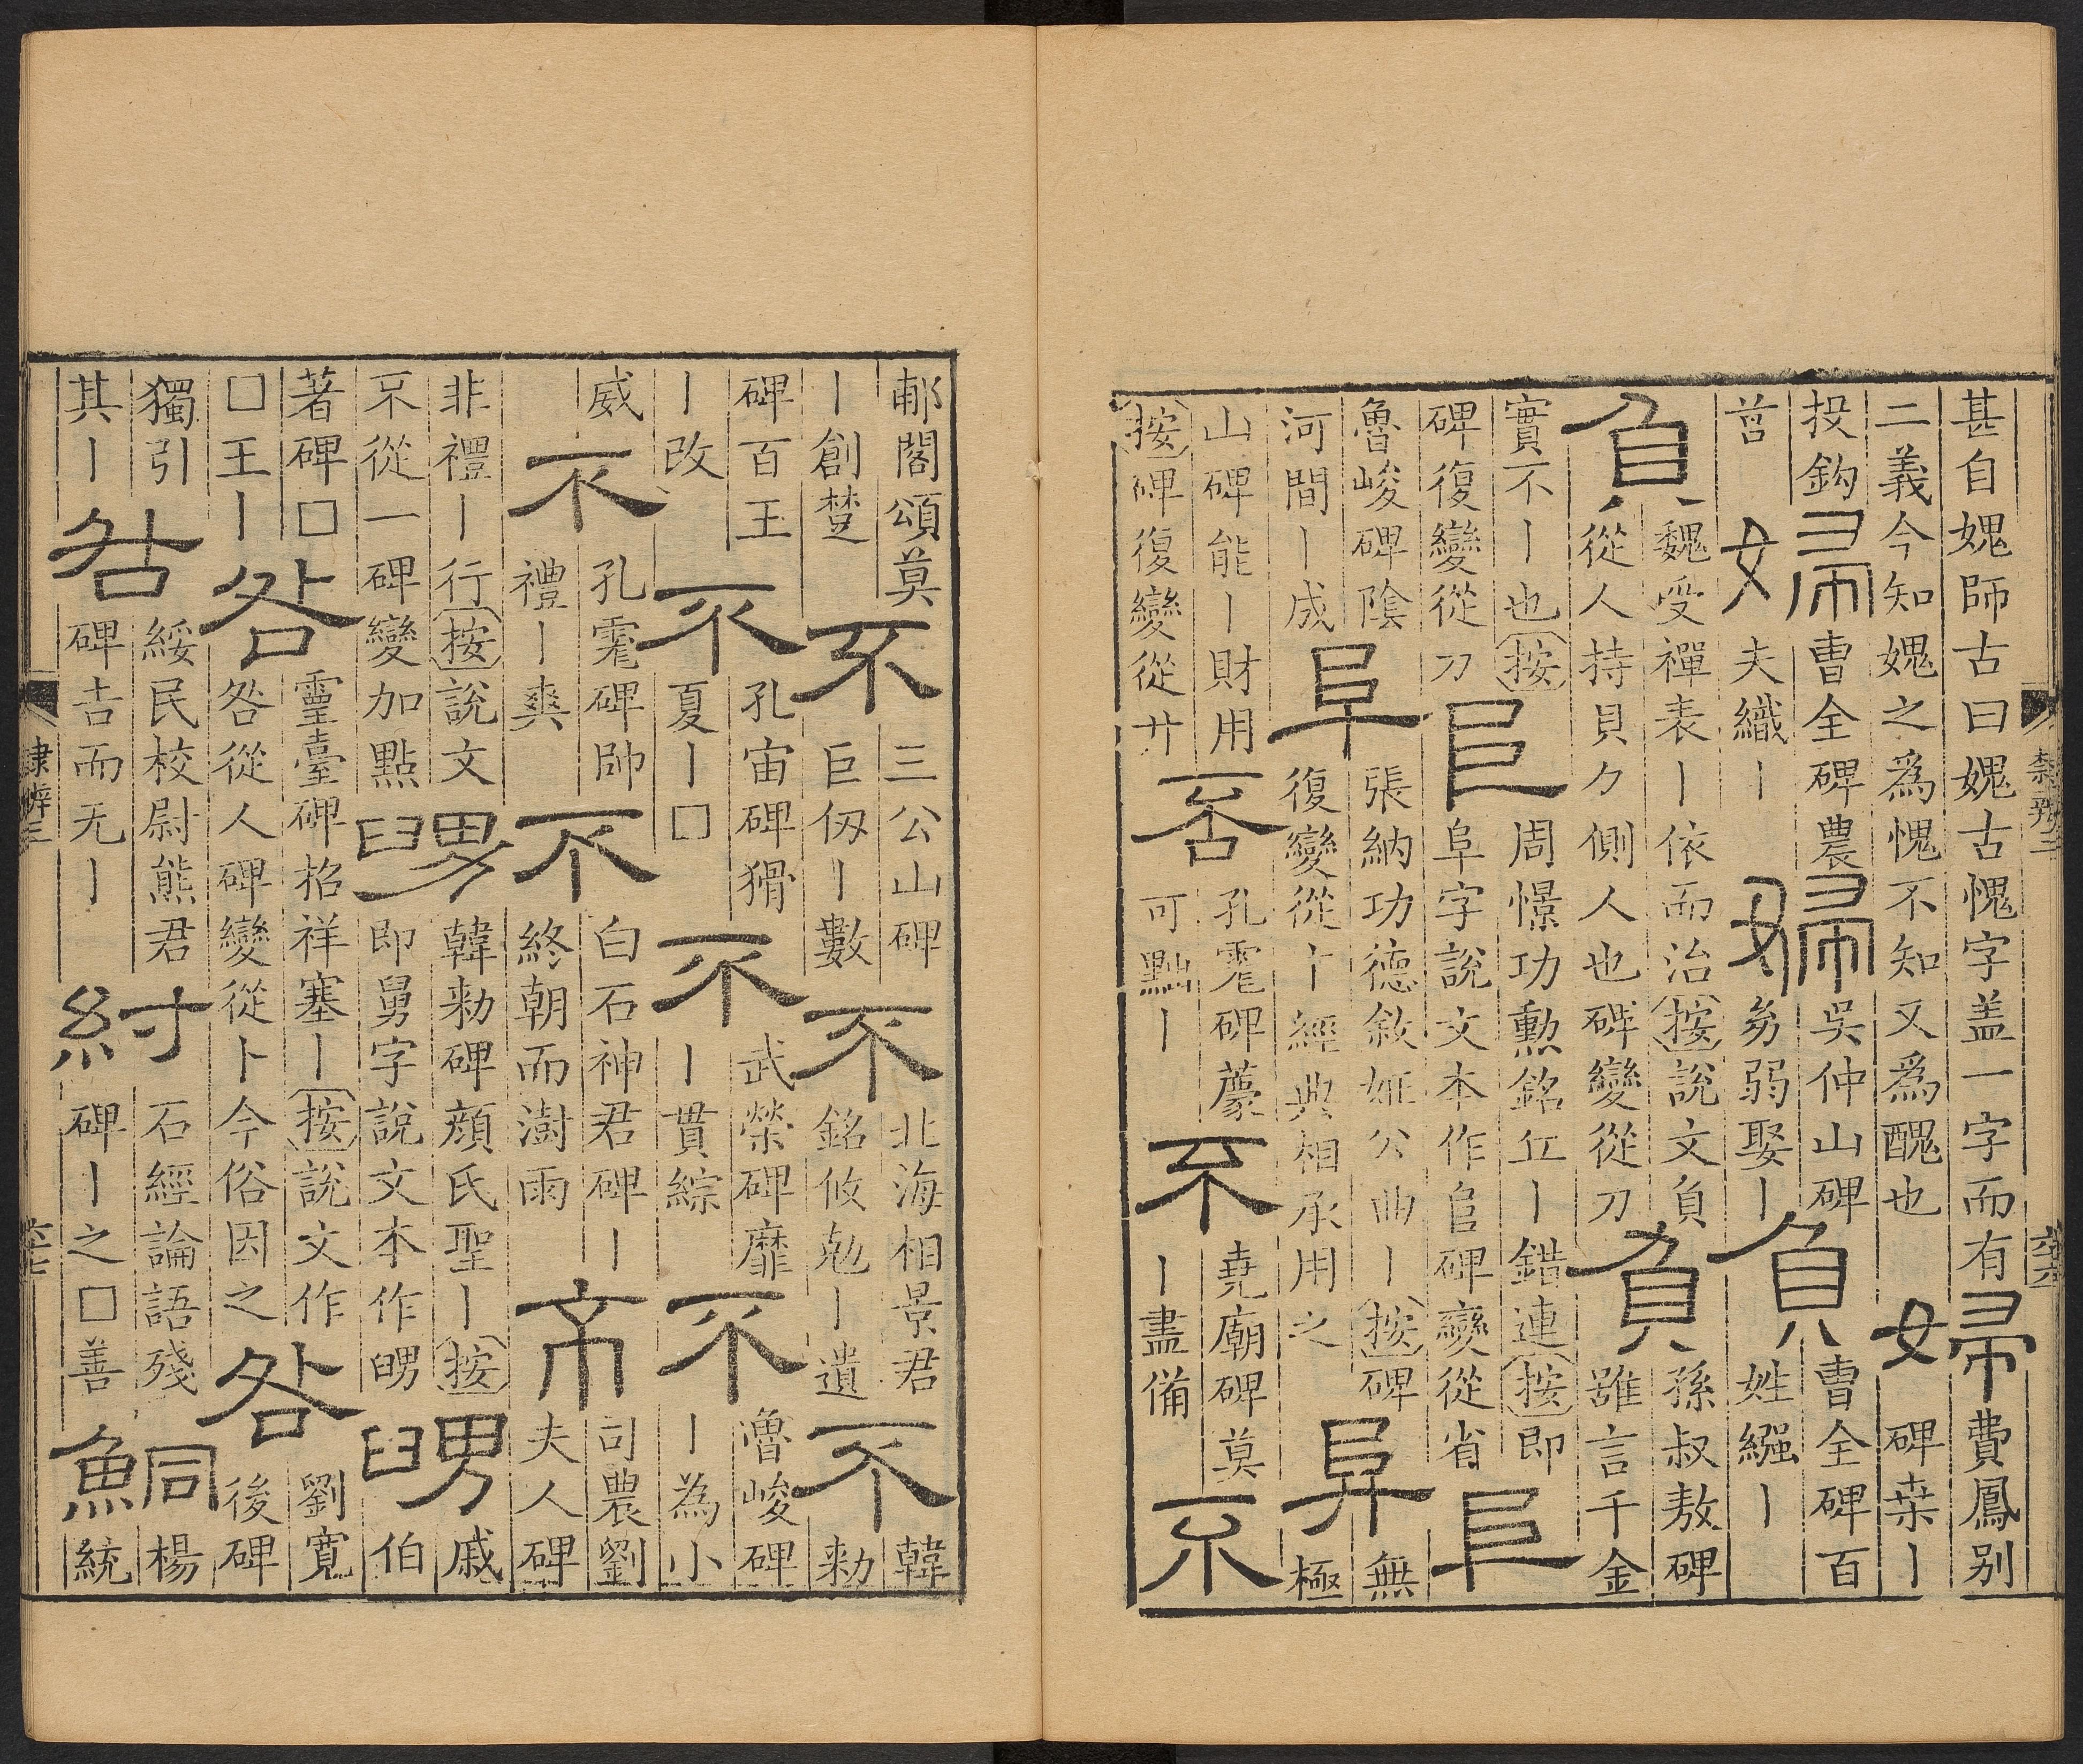 甚自媿師古曰媿古愧字盖一字而有
二義今知媿之爲愧不知又爲醜也
婦
費鳳别
碑桒丨
投鈎
莒
婦
曹全碑農
夫織丨
婦
吳仲山碑
㓜弱娶丨
負
曹全碑百
姓繦丨
負
魏受禪表丨依而治按說文負
從人持貝𠂊側人也碑變從刀
負
孫叔敖碑
雖言千金
實不丨也按
碑復變從刀
𨸏
周憬功勲銘丘丨錯連按即
阜字說文本作𨸏碑變從省
𨸏
魯峻碑陰
河間丨成
阜
張納功德敘姬公曲丨按碑
復變從十經典相承用之
阜
無
極
山碑能丨財用
按碑復變從廾
否
孔霍碑蒙
可黜丨
不
堯廟碑莫
丨盡備
不
隸辨三
六十六
郙閣頌莫
丨創楚
不
三公山碑
巨仞丨數
不
北海相景君
銘攸勊丨遺
不
韓
敕
碑百王
丨改
不
孔宙碑猾
夏丨□
不
武榮碑靡
丨貫綜
不
魯峻碑
丨為小
威
不
孔霍碑帥
禮丨爽
不
白石神君碑丨
終朝而澍雨
不
司農劉
夫人碑
非禮丨行按說文
不從一碑變加點
舅
韓敕碑顏氏聖丨按
即舅字說文本作舅
舅
戚
伯
著碑□
□王丨
咎
靈臺碑招祥塞丨按說文作
咎從人碑變從卜今俗因之
咎
劉寬
後碑
獨引
其丨
咎
綏民校尉熊君
碑吉而无丨
紂
石經論語殘
碑丨之□善
鮦
楊
統
隸辨三
六十七